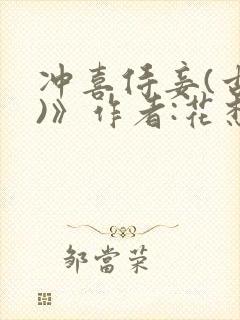 冲喜侍妾(古
)》作者:花
邹當荣